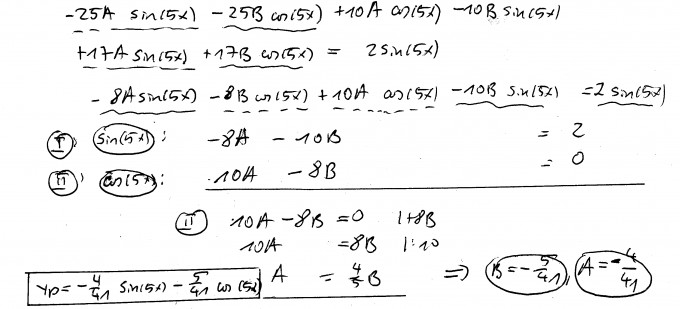 -25A sin(5x) -25B cos(5x) +10A cos(5x) -10B sin(5x)
+17A sin(5x) +17B cos(5x) = 2 sin(5x)
-8A sin(5x) -8B cos(5x) +10A cos(5x) -10B sin(5x) = 2 sin(5x)
I) sin(5x): -8A - 10B = 2
II) cos(5x): 10A - 8B = 0
II 10A - 8B = 0 |+8B
10A = 8B |:10
yp = -4/41 sin(5x) - 5/41 cos(5x) A = 4/5 B ⇒ B = -5/41, A = -4/41